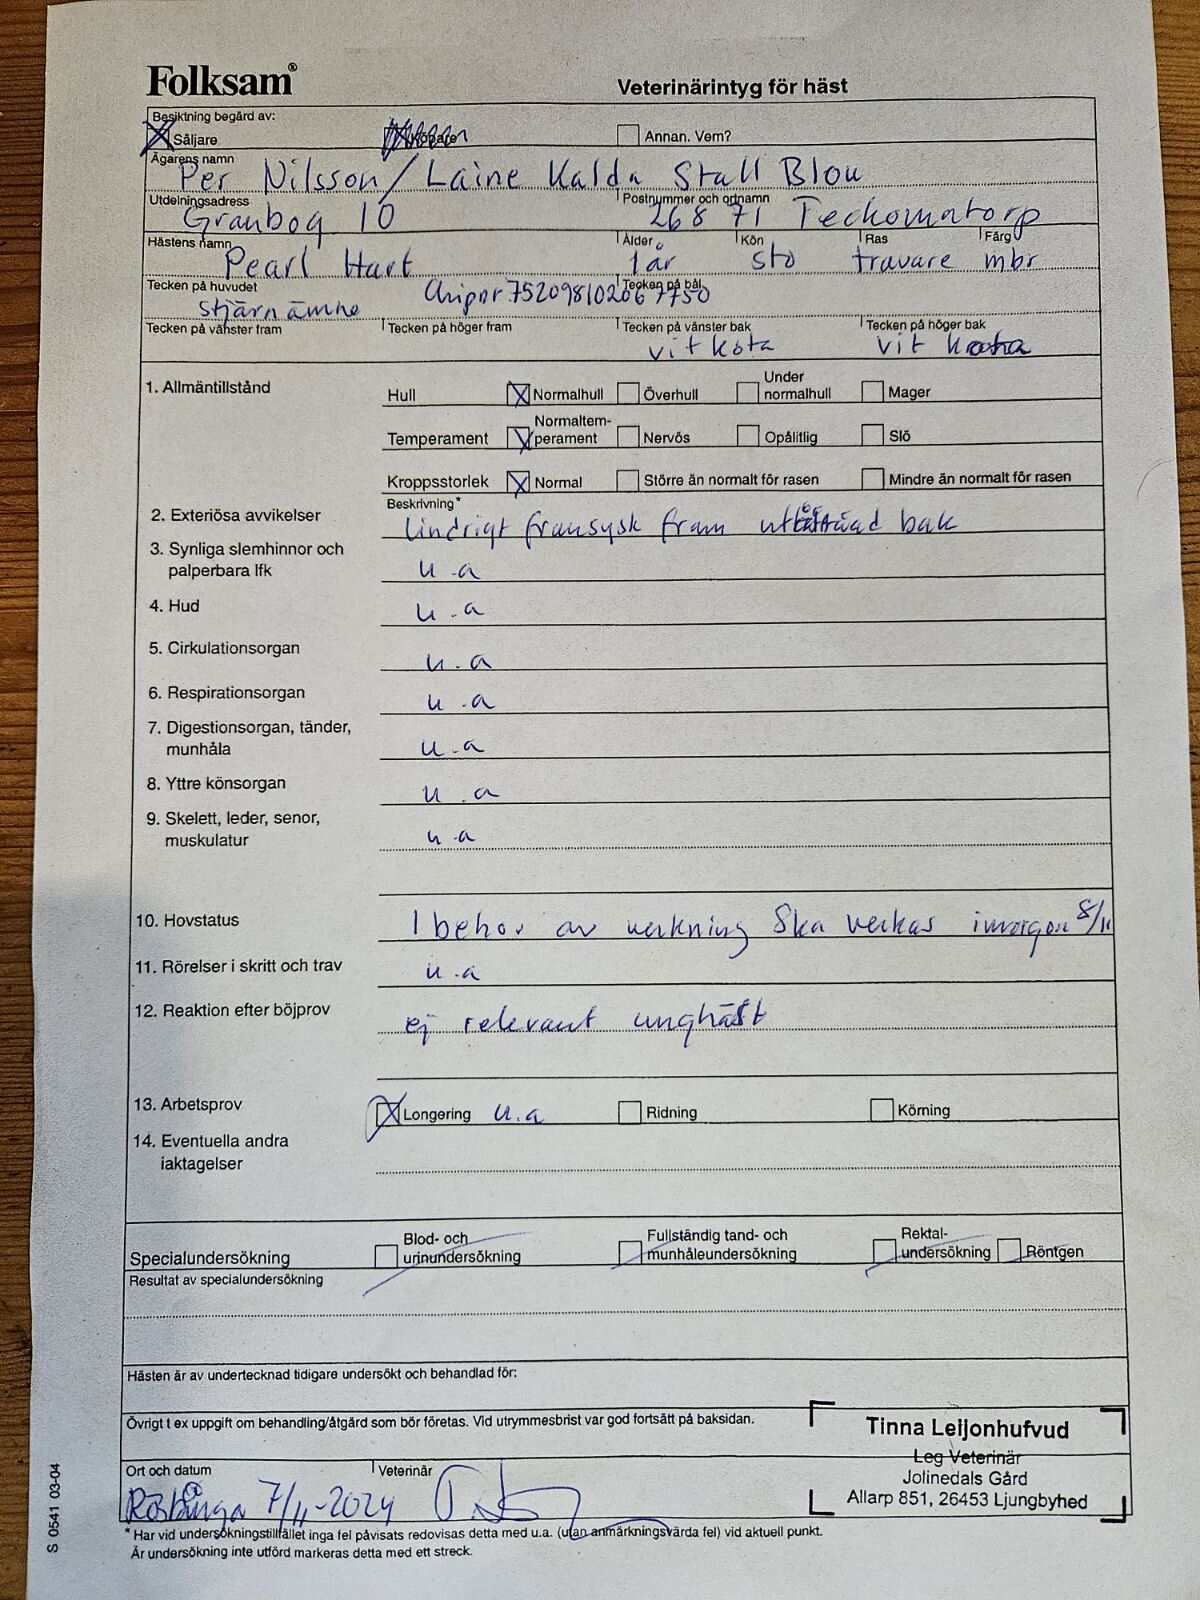 Folksam®
Veterinärintyg för häst
Besiktning begärd av:
Säljare
Köpare
Annan. Vem?
Ägarens namn
Per Nilsson/Laine Kalda Stall Blou
Utdelningsadress
Postnummer och ortnamn
Granbog 10
268 71 Teckomatorp
Hästens namn
Ålder
Kön
Ras
Färg
Pearl Hart
1 år
sto
travare
mbr
Tecken på huvudet
Tecken på bål
stjärnämne
Chipnr 752098102067750
Tecken på vänster fram
Tecken på höger fram
Tecken på vänster bak
Tecken på höger bak
vit kota
vit
1. Allmäntillstånd
Hull
Normalhull
Överhull
Under normalhull
Mager
Temperament
Normaltem-
perament
Nervös
Opålitlig
Slö
Kroppsstorlek
Normal
Större än normalt för rasen
Mindre än normalt för rasen
Beskrivning*
2. Exteriösa avvikelser
lindrigt fransysk fram bak
3. Synliga slemhinnor och
palperbara lfk
u.a
4. Hud
u.a
5. Cirkulationsorgan
u.a
6. Respirationsorgan
u.a
7. Digestionsorgan, tänder,
munhåla
u.a
8. Yttre könsorgan
u.a
9. Skelett, leder, senor,
muskulatur
u.a
10. Hovstatus
I behov av verkning Ska verkas imorgon 8/11
11. Rörelser i skritt och trav
u.a
12. Reaktion efter böjprov
ej relevant unghäst
13. Arbetsprov
Longering u.a
Ridning
Körning
14. Eventuella andra
iaktagelser
Specialundersökning
Blod- och
urinundersökning
Fullständig tand- och
munhåleundersökning
Rektal-
undersökning
Röntgen
Resultat av specialundersökning
Hästen är av undertecknad tidigare undersökt och behandlad för:
Övrigt t ex uppgift om behandling/åtgärd som bör företas. Vid utrymmesbrist var god fortsätt på baksidan.
Tinna Leijonhufvud
Leg Veterinär
Jolinedals Gård
Allarp 851, 26453 Ljungbyhed
Ort och datum
Veterinär
Röstånga 7/11-2024
* Har vid undersökningstillfället inga fel påvisats redovisas detta med u.a. (utan anmärkningsvärda fel) vid aktuell punkt.
Är undersökning inte utförd markeras detta med ett streck.
S 0541 03-04